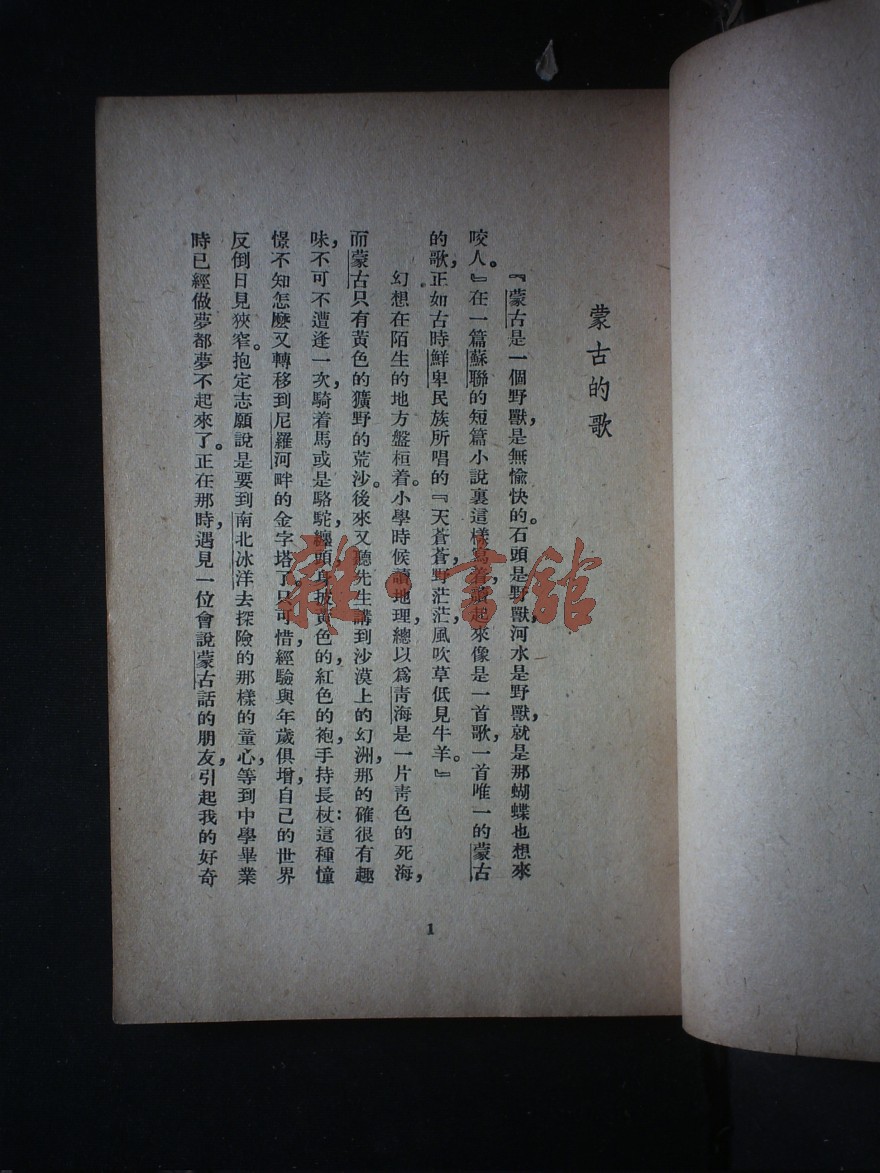 蒙古的歌
『蒙古是一個野獸，是無愉快的。石頭是野獸，河水是野獸，就是那蝴蝶也想來
咬人。』在一篇蘇聯的短篇小說裏這樣寫着，讀起來像是一首歌，一首唯一的蒙古
的歌，正如古時鮮卑民族所唱的『天蒼蒼，野茫茫，風吹草低見牛羊。』
幻想在陌生的地方盤桓着。小學時候讀地理，總以爲青海是一片靑色的死海，
而蒙古只有黃色的獷野的荒沙。後來又聽先生講到沙漠上的幻洲，那的確很有趣
味，不可不遭逢一次，騎着馬或是駱駝，纏頭，身披黃色的，紅色的袍，手持長杖：這種憧
憬不知怎麼又轉移到尼羅河畔的金字塔了。只可惜，經驗與年歲俱增，自己的世界
反倒日見狹窄。抱定志願說是要到南北冰洋去探險的那樣的童心，等到中學畢業
時已經做夢都夢不起來了。正在那時，遇見一位會說蒙古話的朋友，引起我的好奇
1
雜·書館